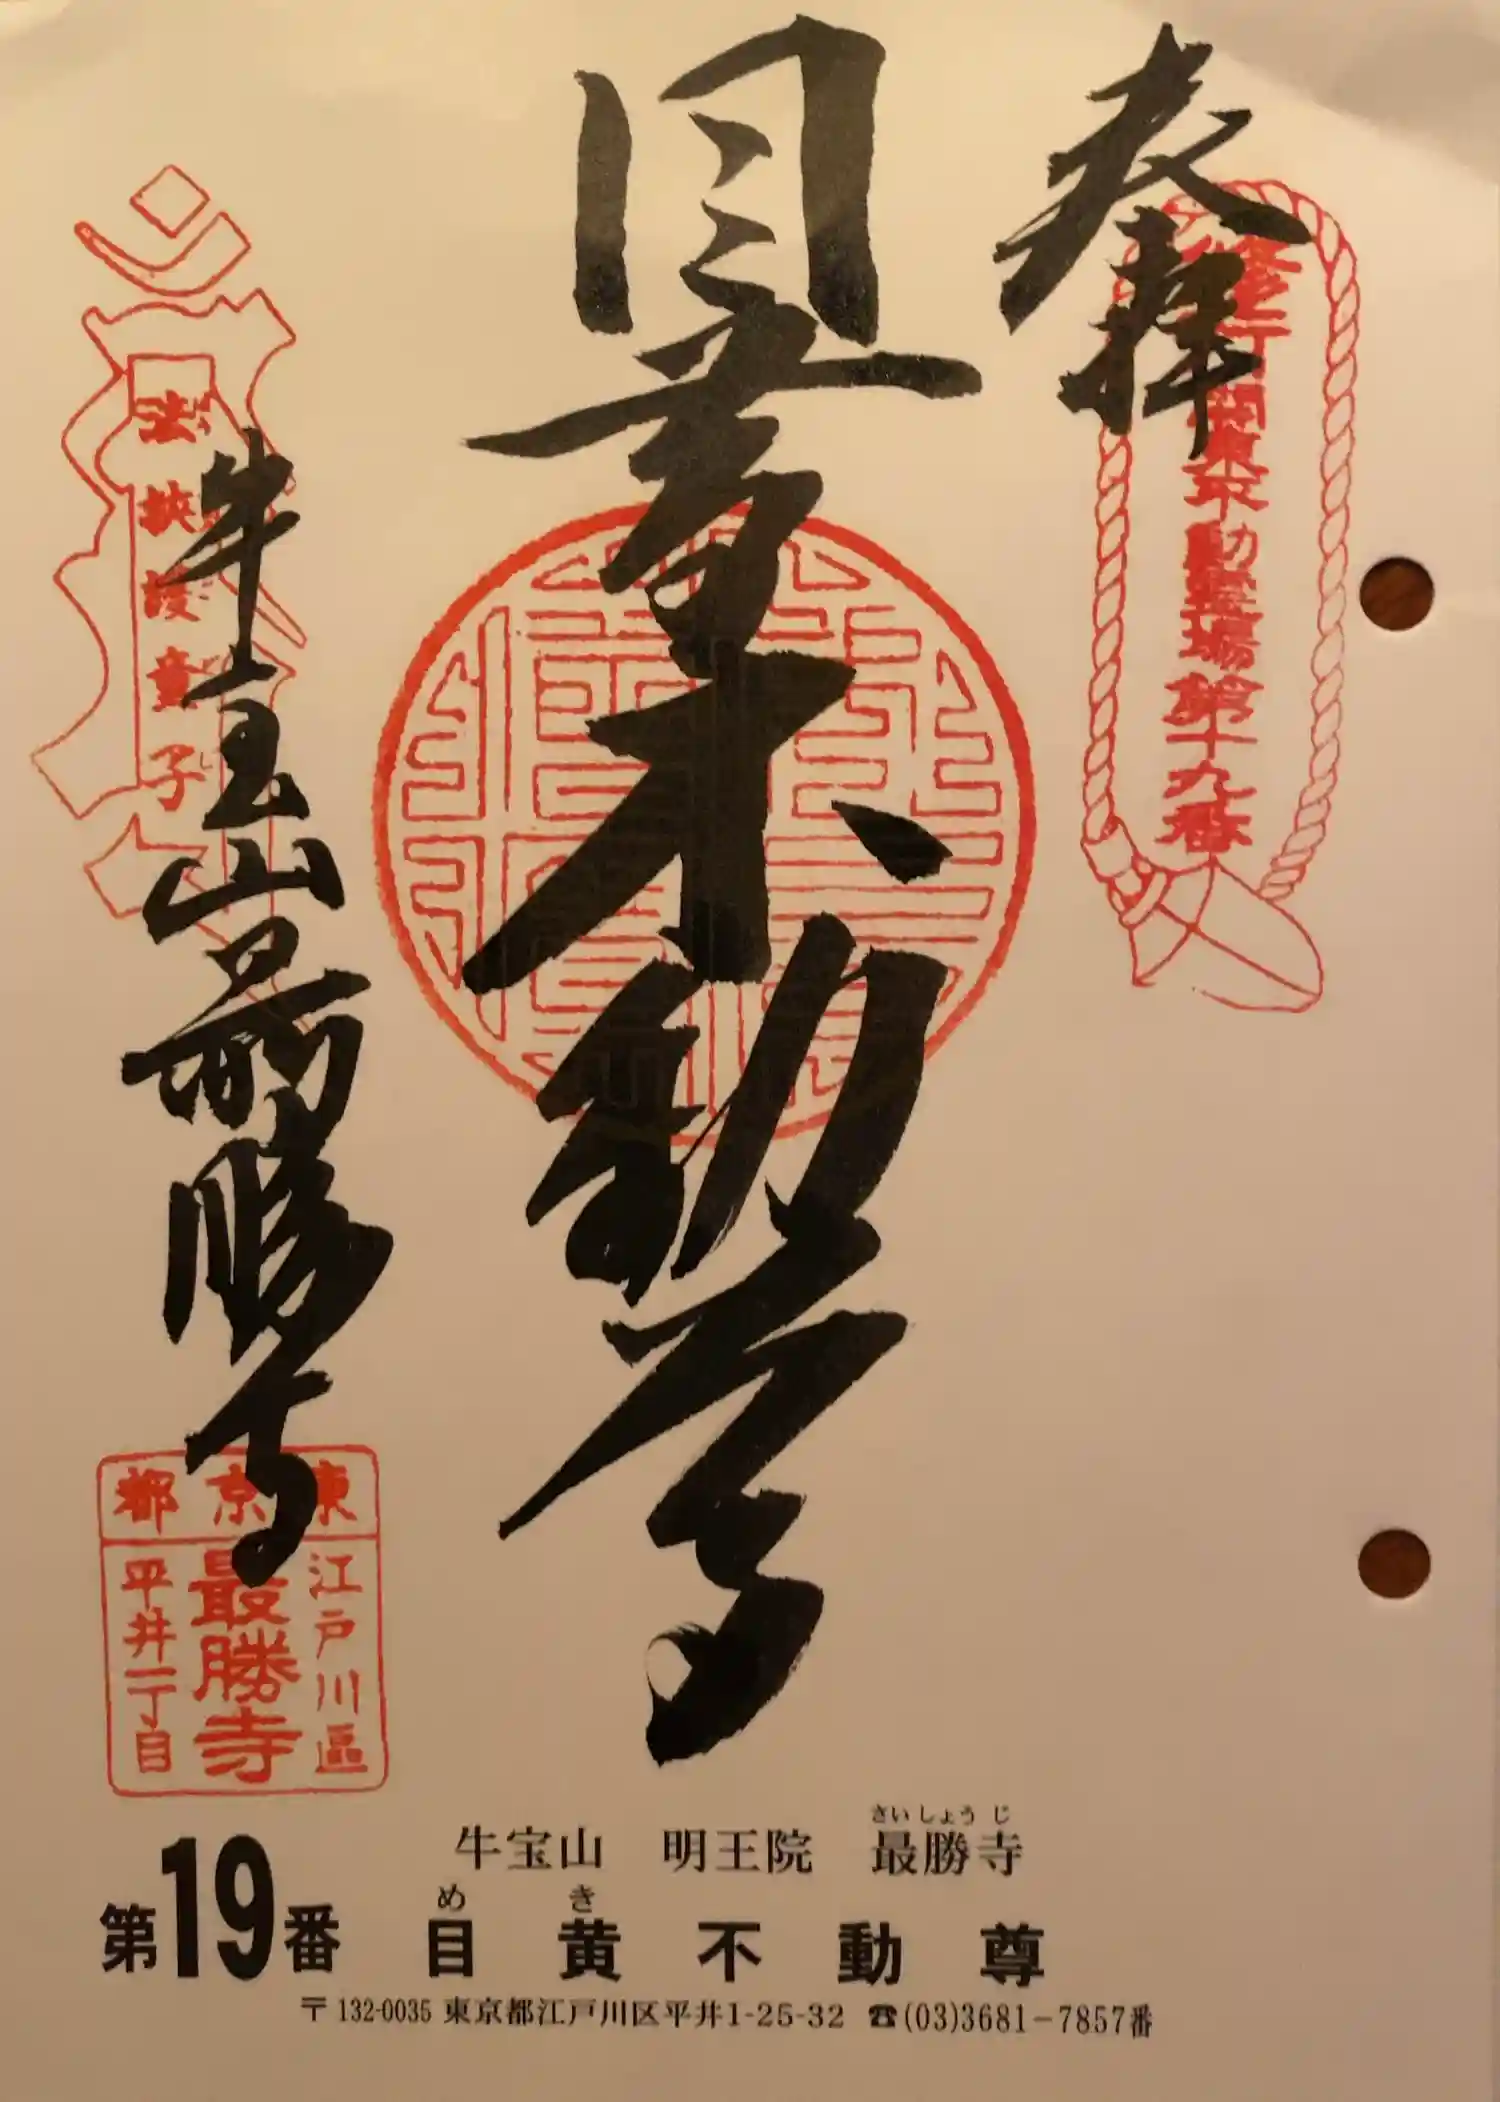 奉拝
修行 関東不動霊場第十九番
目黄不動尊
牛宝山最勝寺
法挟護童子
東京都
江戸川區
最勝寺
平井一丁目
牛宝山 明王院 最勝寺
さいしょうじ
第19番 目黄不動尊
めき
〒132-0035 東京都江戸川区平井1-25-32 ☎(03)3681-7857番